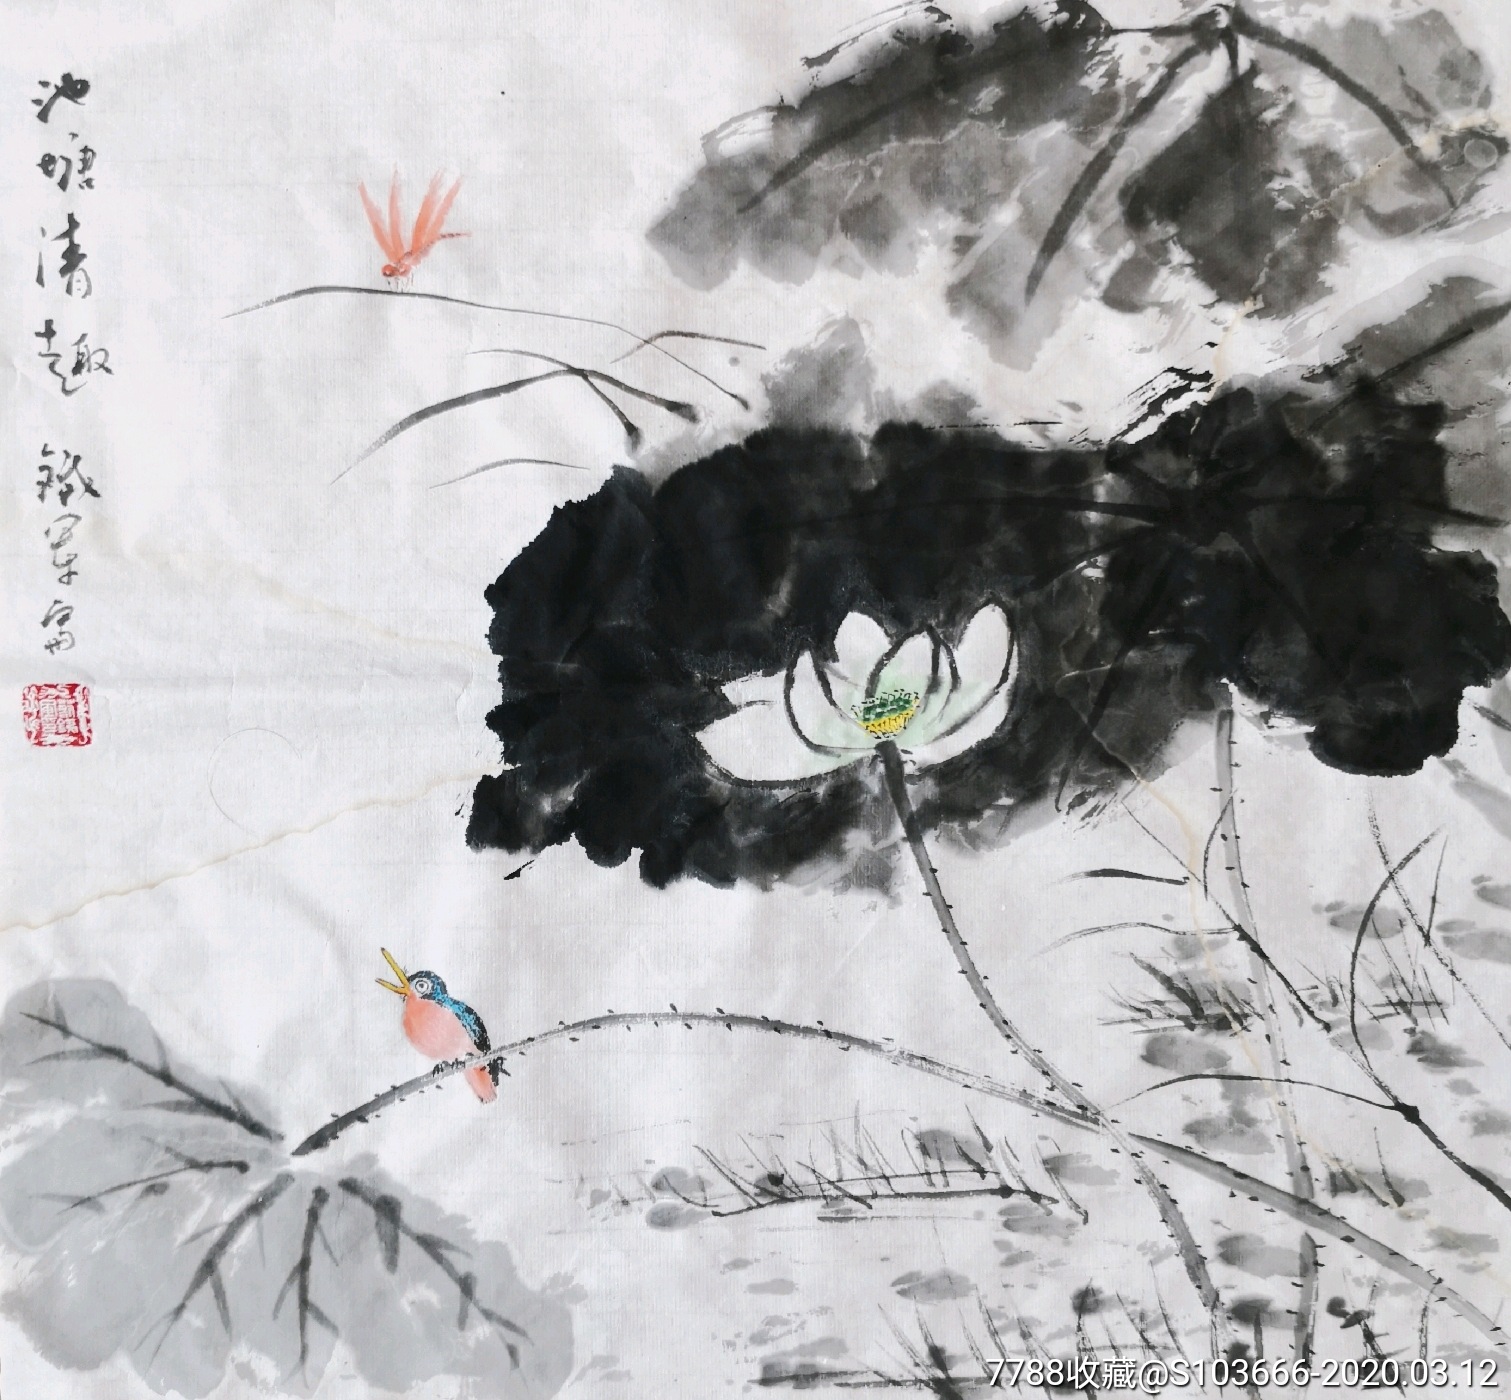 池塘清趣 铁军写
7788收藏@S103666-2020.03.12